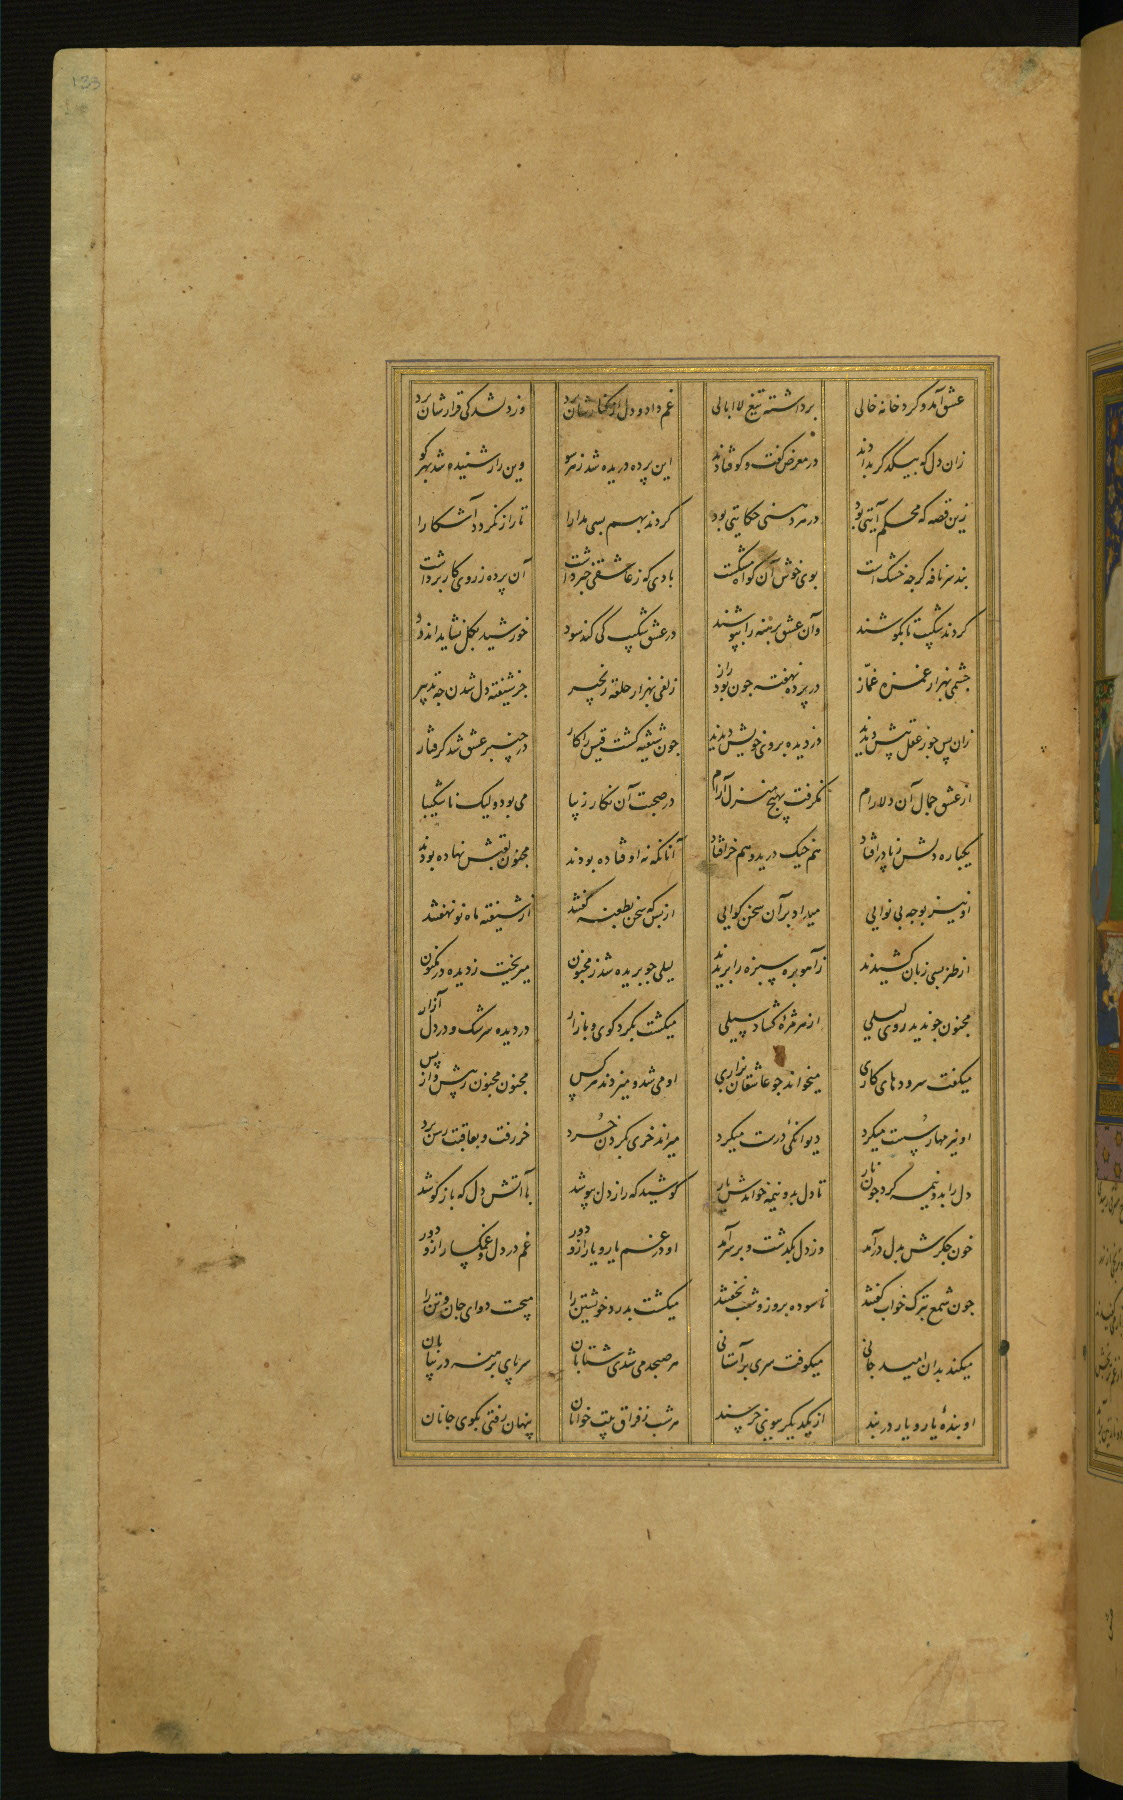 133
عشق آمد و کرد خانه خالی برداشته تیغ لاابالی غم داد و دل از کنارشان برد وز دلشدگی قرارشان برد
زان دل که بیکدگر بدادند در معرض گفت و کو فتادند این پرده دریده شد ز هر سو وین راز شنیده شد بهر کو
زین قصه که محکم آیتی بود در هر دهنی حکایتی بود کردند بهم بسی مدارا تا راز نکردد آشکارا
بند سر نافه کرچه خشک است بوی خوش آن کواه مشکست بادی که ز عاشقی خبر داشت آن پرده ز روی کار برداشت
کردند شکیب تا بکوشند وان عشق برهنه را بپوشند در عشق شکیب کی کند سود خورشید بکل نشاید اندود
چشمی بهزار غمزه غماز در پرده نهفته چون بود راز زلفی بهزار حلقه زنجیر جز شیفته دل شدن چه تدبیر
زان پس چو ز عقل پیش دیدند دزدیده بروی خویش دیدند چون شیفته کشت قیس را کار در چنبر عشق شد کرفتار
از عشق جمال آن دلارام نکرفت بهیچ منزل آرام در صحبت آن نکار زیبا می بود ولیک ناشکیبا
یکباره دلش ز پا درافتاد هم خیک درید و هم خر افتاد آنانکه نه اوفتاده بودند مجنون لقبش نهاده بودند
او نیز بوجه بی نوایی میداد بر آن سخن کوایی از بس که سخن بطعنه گفتند از شیفته ماه نو نهفتند
از طنز بسی زبان کشیدند ز آهو بره سبزه را بریدند لیلی چو بریده شد ز مجنون میریخت ز دیده در مکنون
مجنون چو ندید روی لیلی از هر مژه‌ٔ کشاد سیلی میکشت بکرد کوی و بازار در دیده سرشک و در دل آزار
میکفت سرودهای کاری میخواند چو عاشقان بزاری او می شد و میزدند هر کس مجنون مجنون ز پیش و از پس
او نیز مهار سست میکرد دیوانگی‌ٔ درست میکرد میراند خری بکردن خرد خر رفت و بعاقبت رسن برد
دل را بدو نیمه کرد چون نار تا دل بدو نیمه خواندش یار کوشید که راز دل بپوشد با آتش دل که باز کوشد
خون جکرش بدل درآمد وز دل بگذشت و بر سر آمد او در غم یار و یار ازو دور غم در دل و غمکسار ازو دور
چون شمع بترک خواب کفته ناسوده بروز و شب نخفته میکشت بدرد خویشتن را میجست دوای جان و تن را
میکند بدان امید جانی میکوفت سری بر آستانی هر صبحدمی شدی شتابان سر پای برهنه در بیابان
او بنده‌ٔ یار و یار در بند از یکدیگر ببوی خرسند هر شب ز فراق بیت خوانان پنهان رفتی بکوی جانان